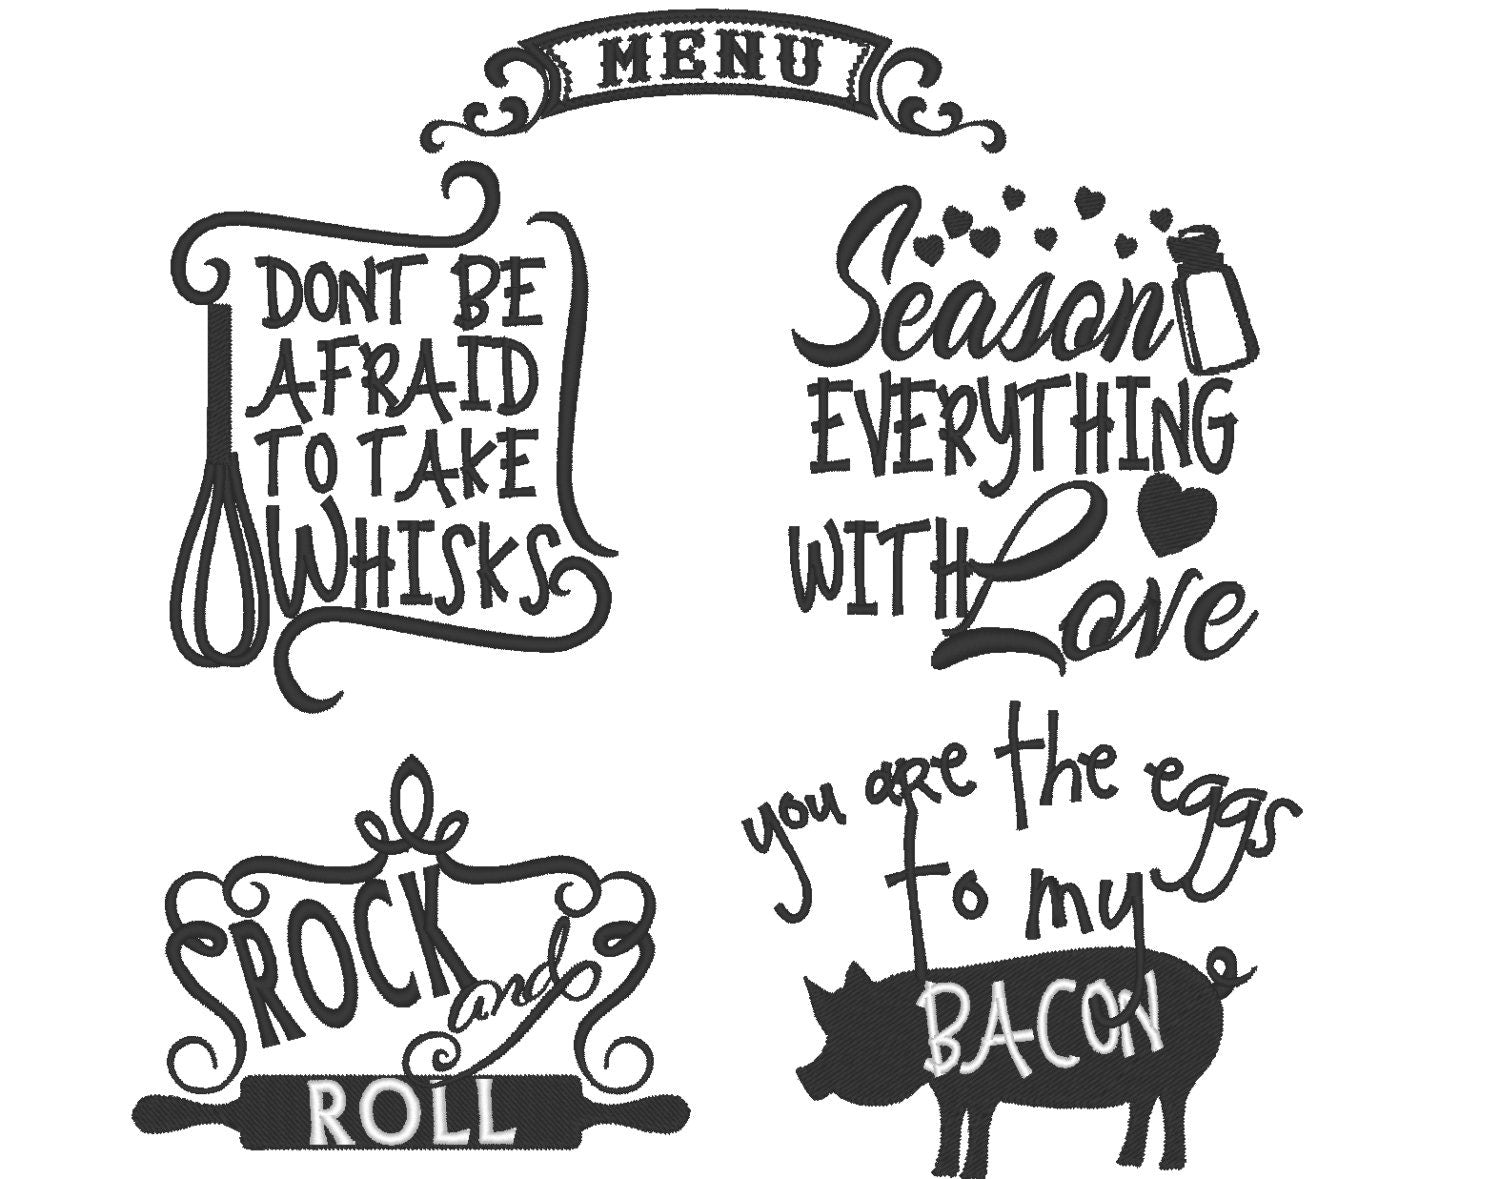 MENU
DONT BE
AFRAID
TO TAKE
WHISKS
Season
EVERYTHING
WITH Love
ROCK
and
ROLL
you are the eggs
to my
BACON